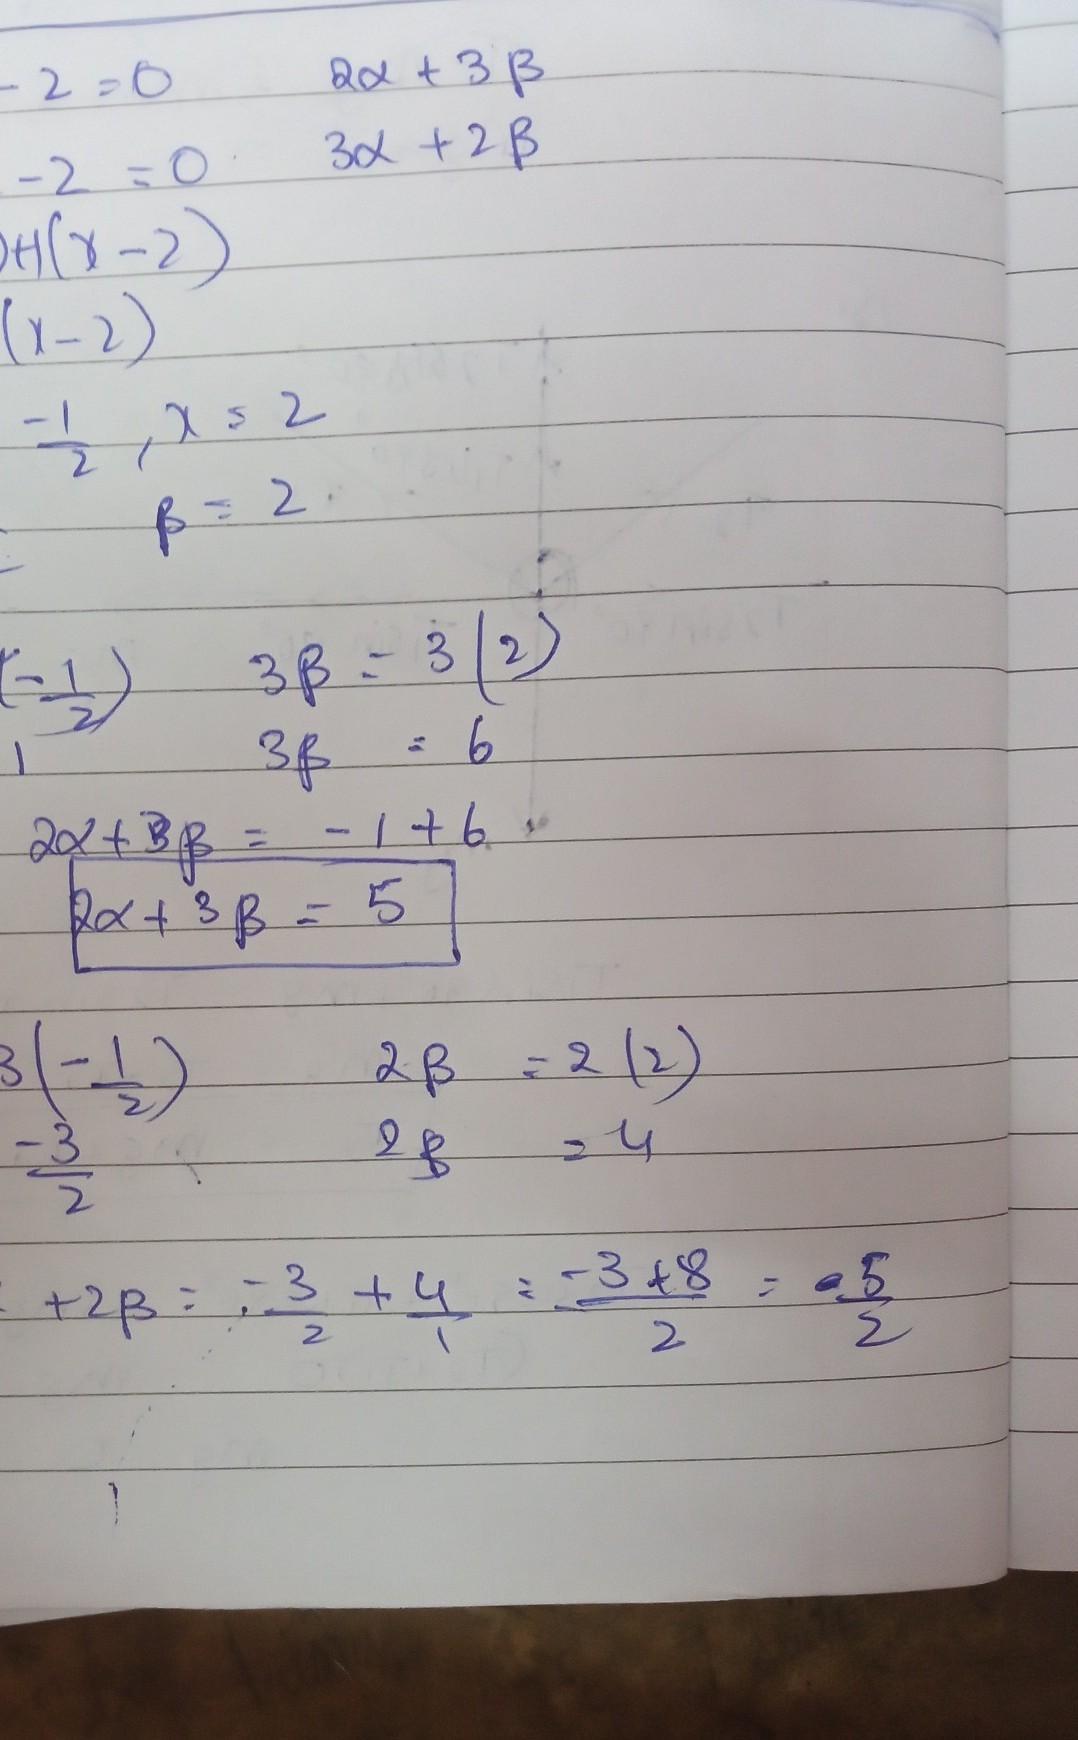 - 2 = 0 2α + 3β
- 2 = 0 3α + 2β
)+1(x - 2)
(x - 2)
-1/2 , x = 2
β = 2
(-1/2) 3β = 3(2)
1 3β = 6
2α + 3β = -1 + 6
2α + 3β = 5
3(-1/2) 2β = 2(2)
-3/2 2β = 4
+ 2β = -3/2 + 4/1 = -3+8/2 = 5/2